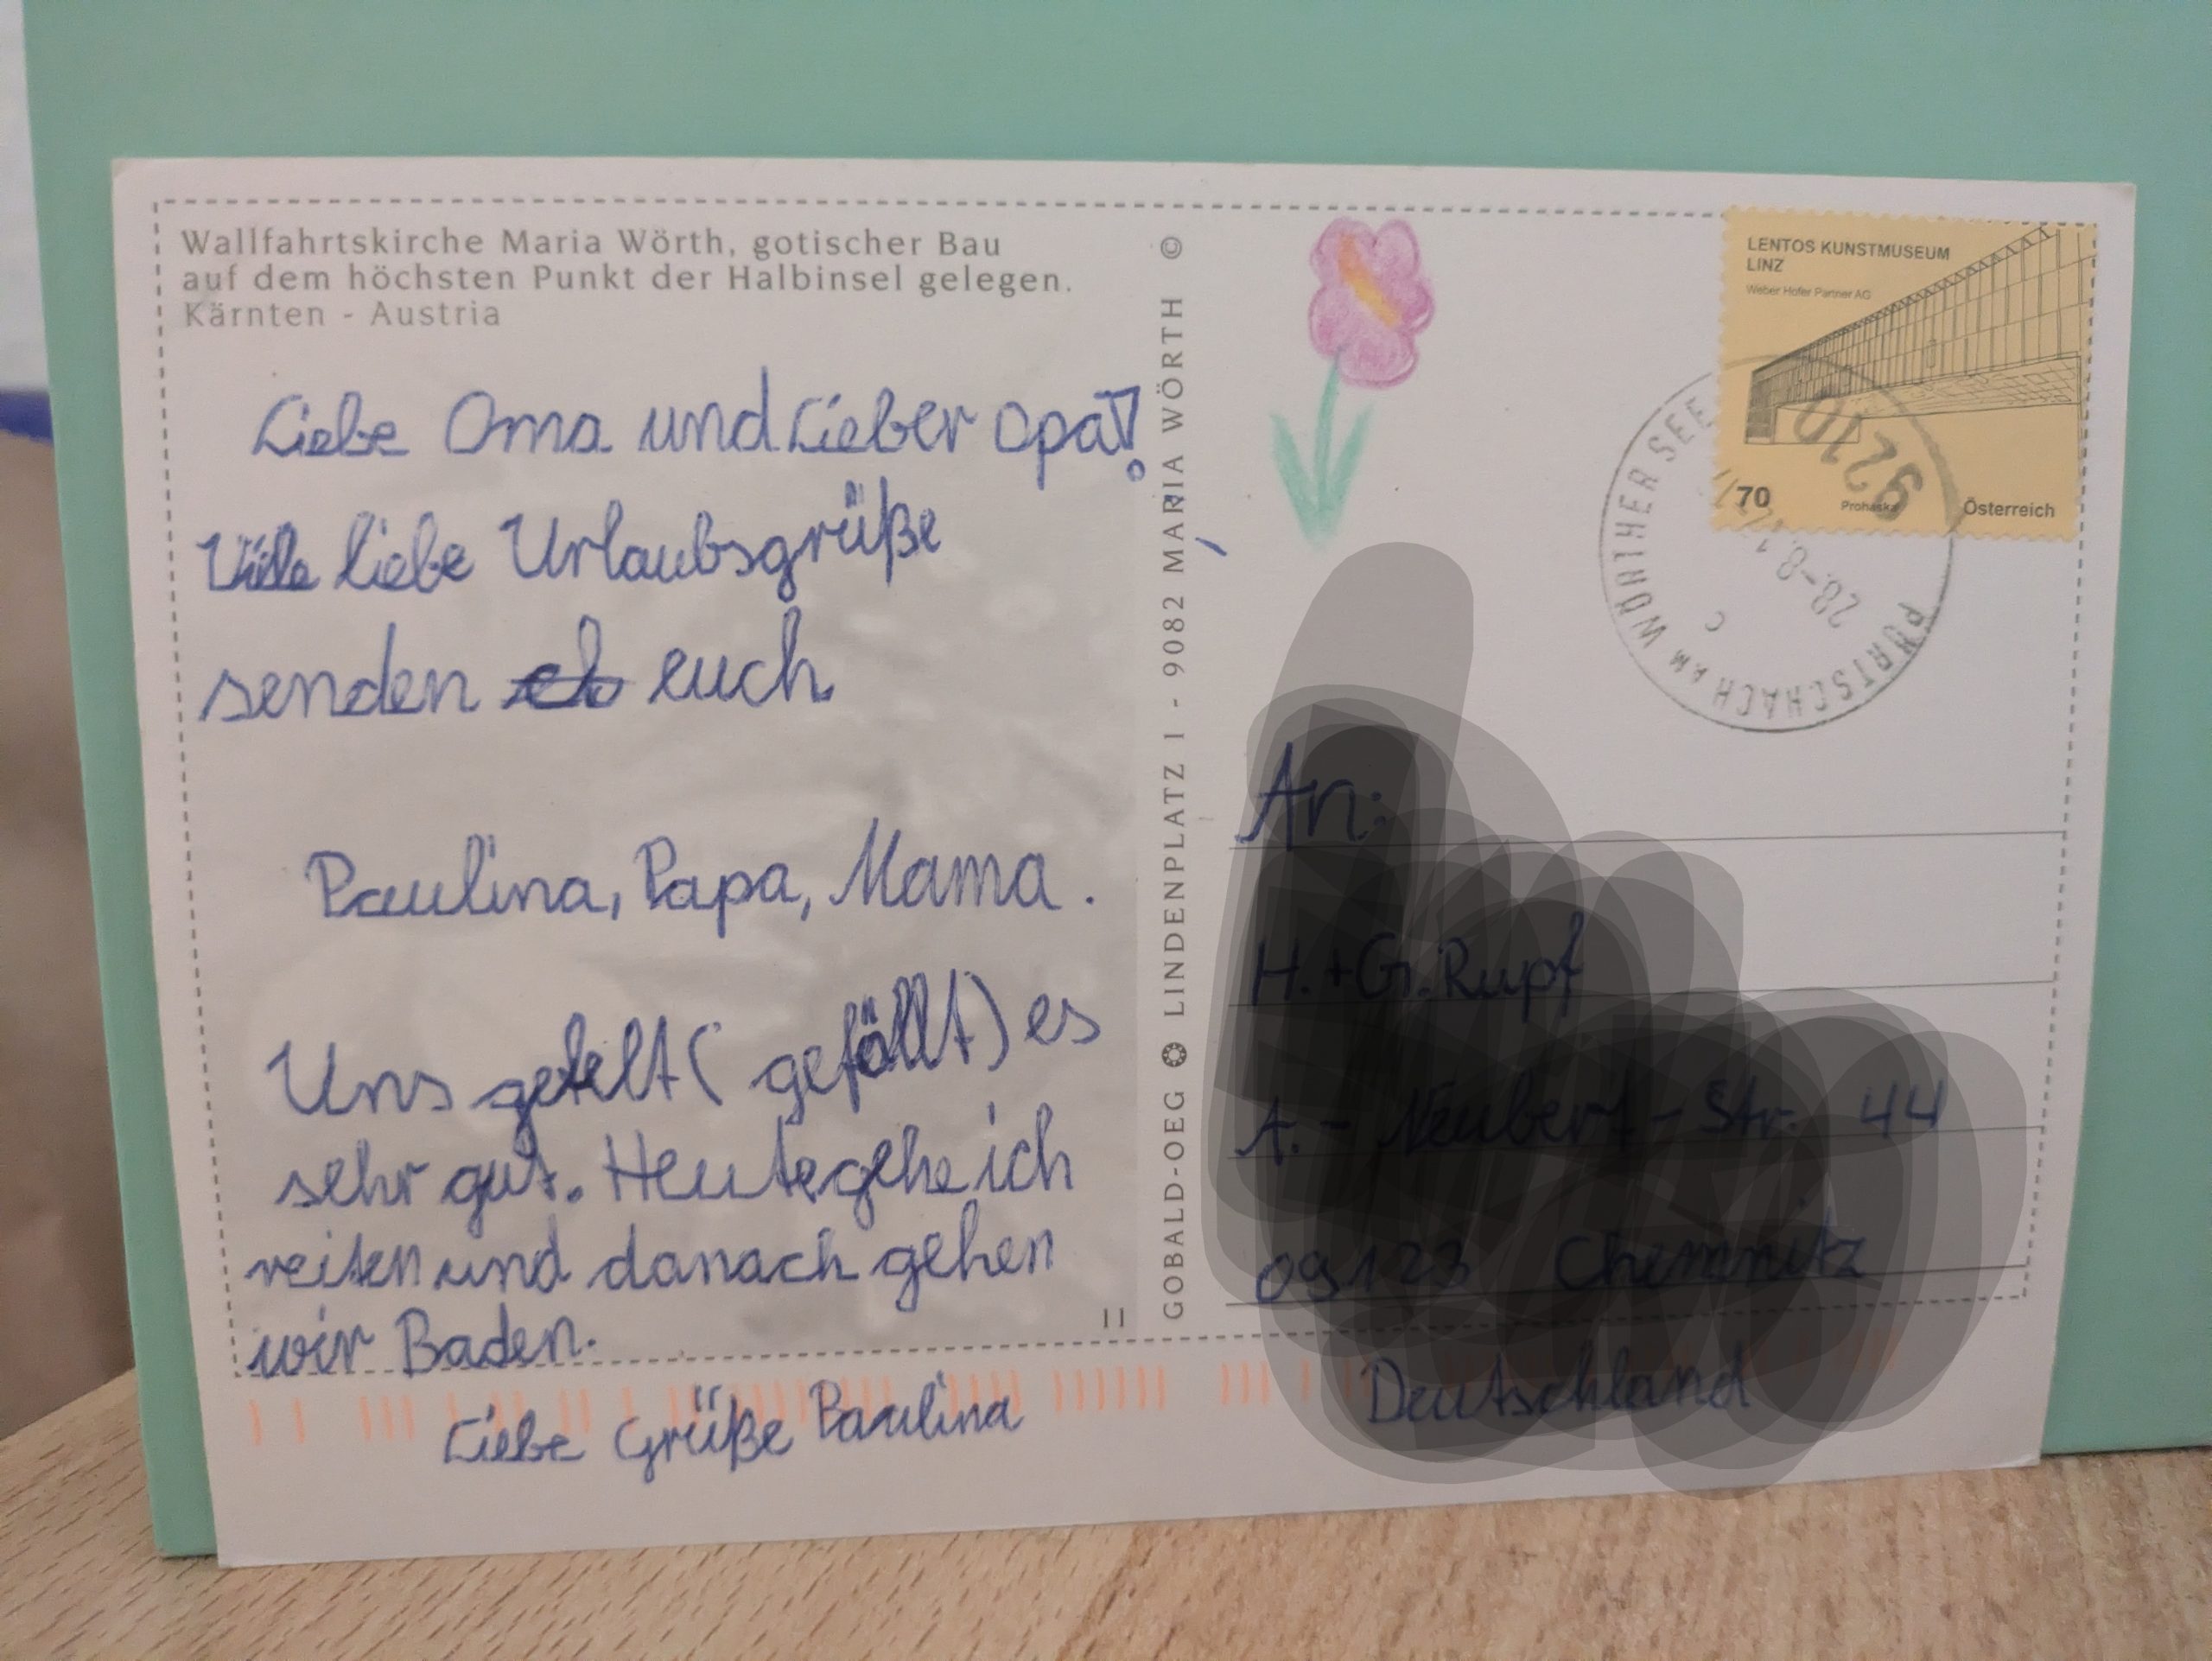 Wallfahrtskirche Maria Wörth, gotischer Bau
auf dem höchsten Punkt der Halbinsel gelegen.
Kärnten - Austria
Liebe Oma und Lieber Opa!
Viele liebe Urlaubsgrüße
senden euch
Paulina, Papa, Mama.
Uns gefelt (gefällt) es
sehr gut. Heute gehe ich
reiten und danach gehen
wir Baden.
Liebe Grüße Paulina
11
GOBALD-OEG LINDENPLATZ 1 - 9082 MARIA WÖRTH ©
LENTOS KUNSTMUSEUM
LINZ
Weber Hofer Partner AG
70 Prohaska Österreich
9210
PÖRTSCHACH AM WÖRTHER SEE
C
An:
Deutschland